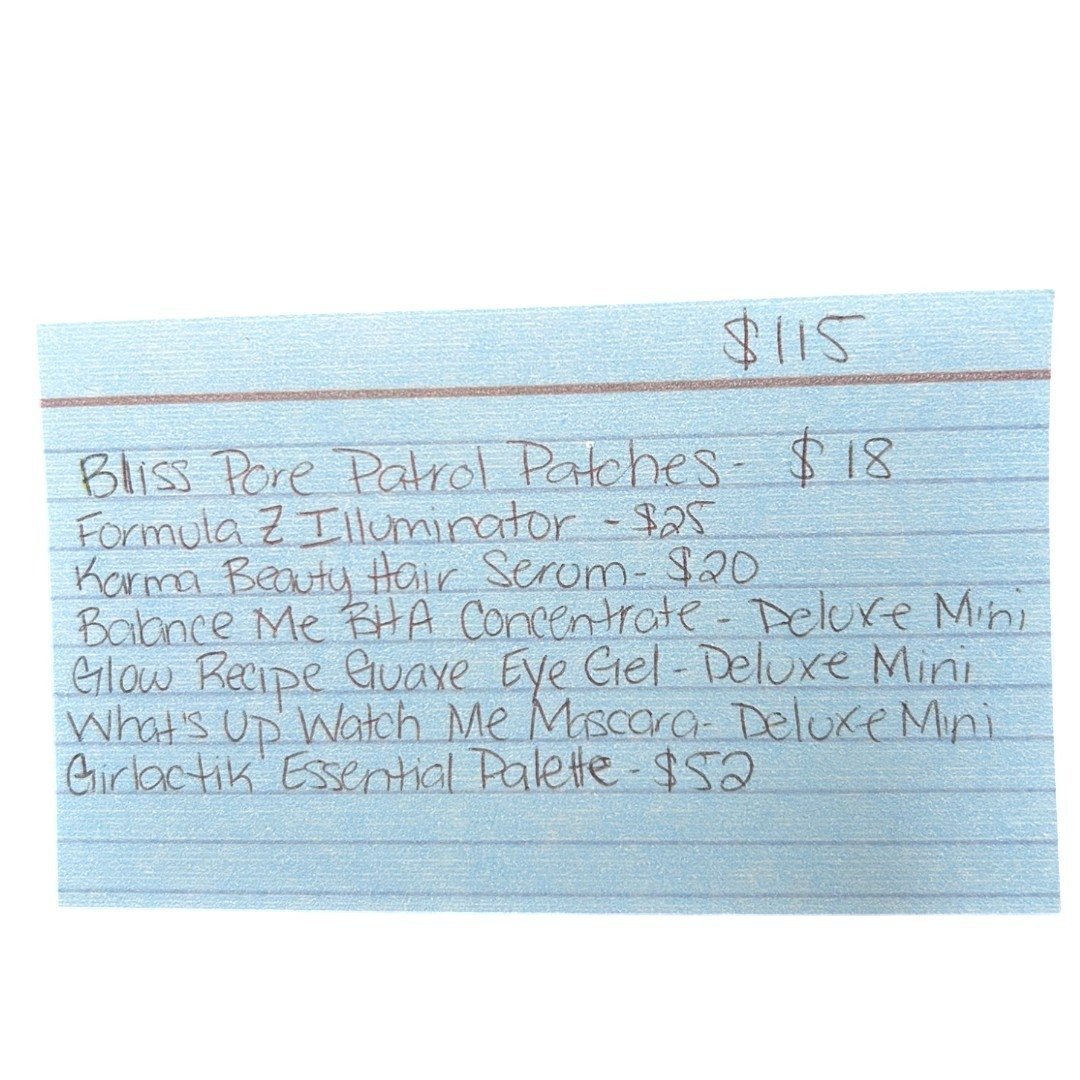 $115
Bliss Pore Patrol Patches - $18
Formula Z Illuminator - $25
Karma Beauty Hair Serum - $20
Balance Me BHA Concentrate - Deluxe Mini
Glow Recipe Guave Eye Gel - Deluxe Mini
What's Up Watch Me Mascara - Deluxe Mini
Girlactik Essential Palette - $52